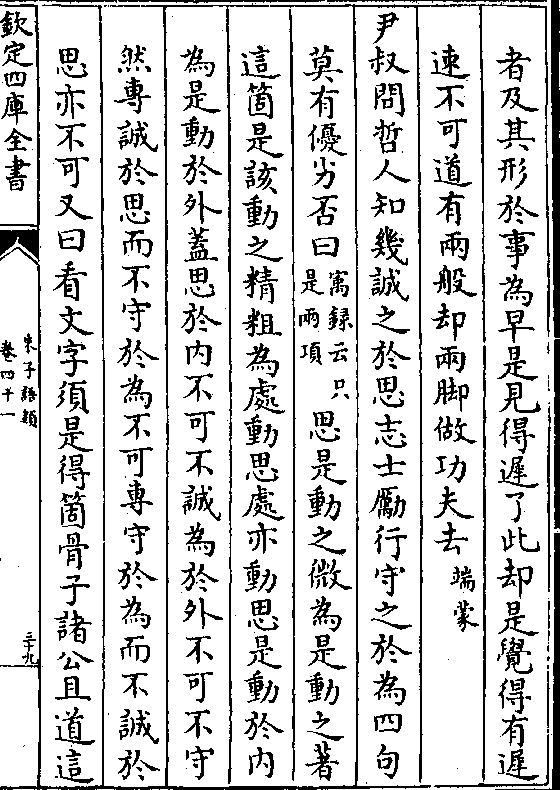 者及其形於事為早是見得遲了此却是覺得有遲
速不可道有兩般却兩脚做功夫去端蒙
尹叔問哲人知幾誠之於思志士勵行守之於為四句
莫有優劣否曰寓録云只是兩項思是動之微為是動之著
這箇是該動之精粗為處動思處亦動思是動於内
為是動於外蓋思於内不可不誠為於外不可不守
然專誠於思而不守於為不可專守於為而不誠於
思亦不可又曰看文字須是得箇骨子諸公且道這
欽定四庫全書
朱子語類
卷四十一
三十九